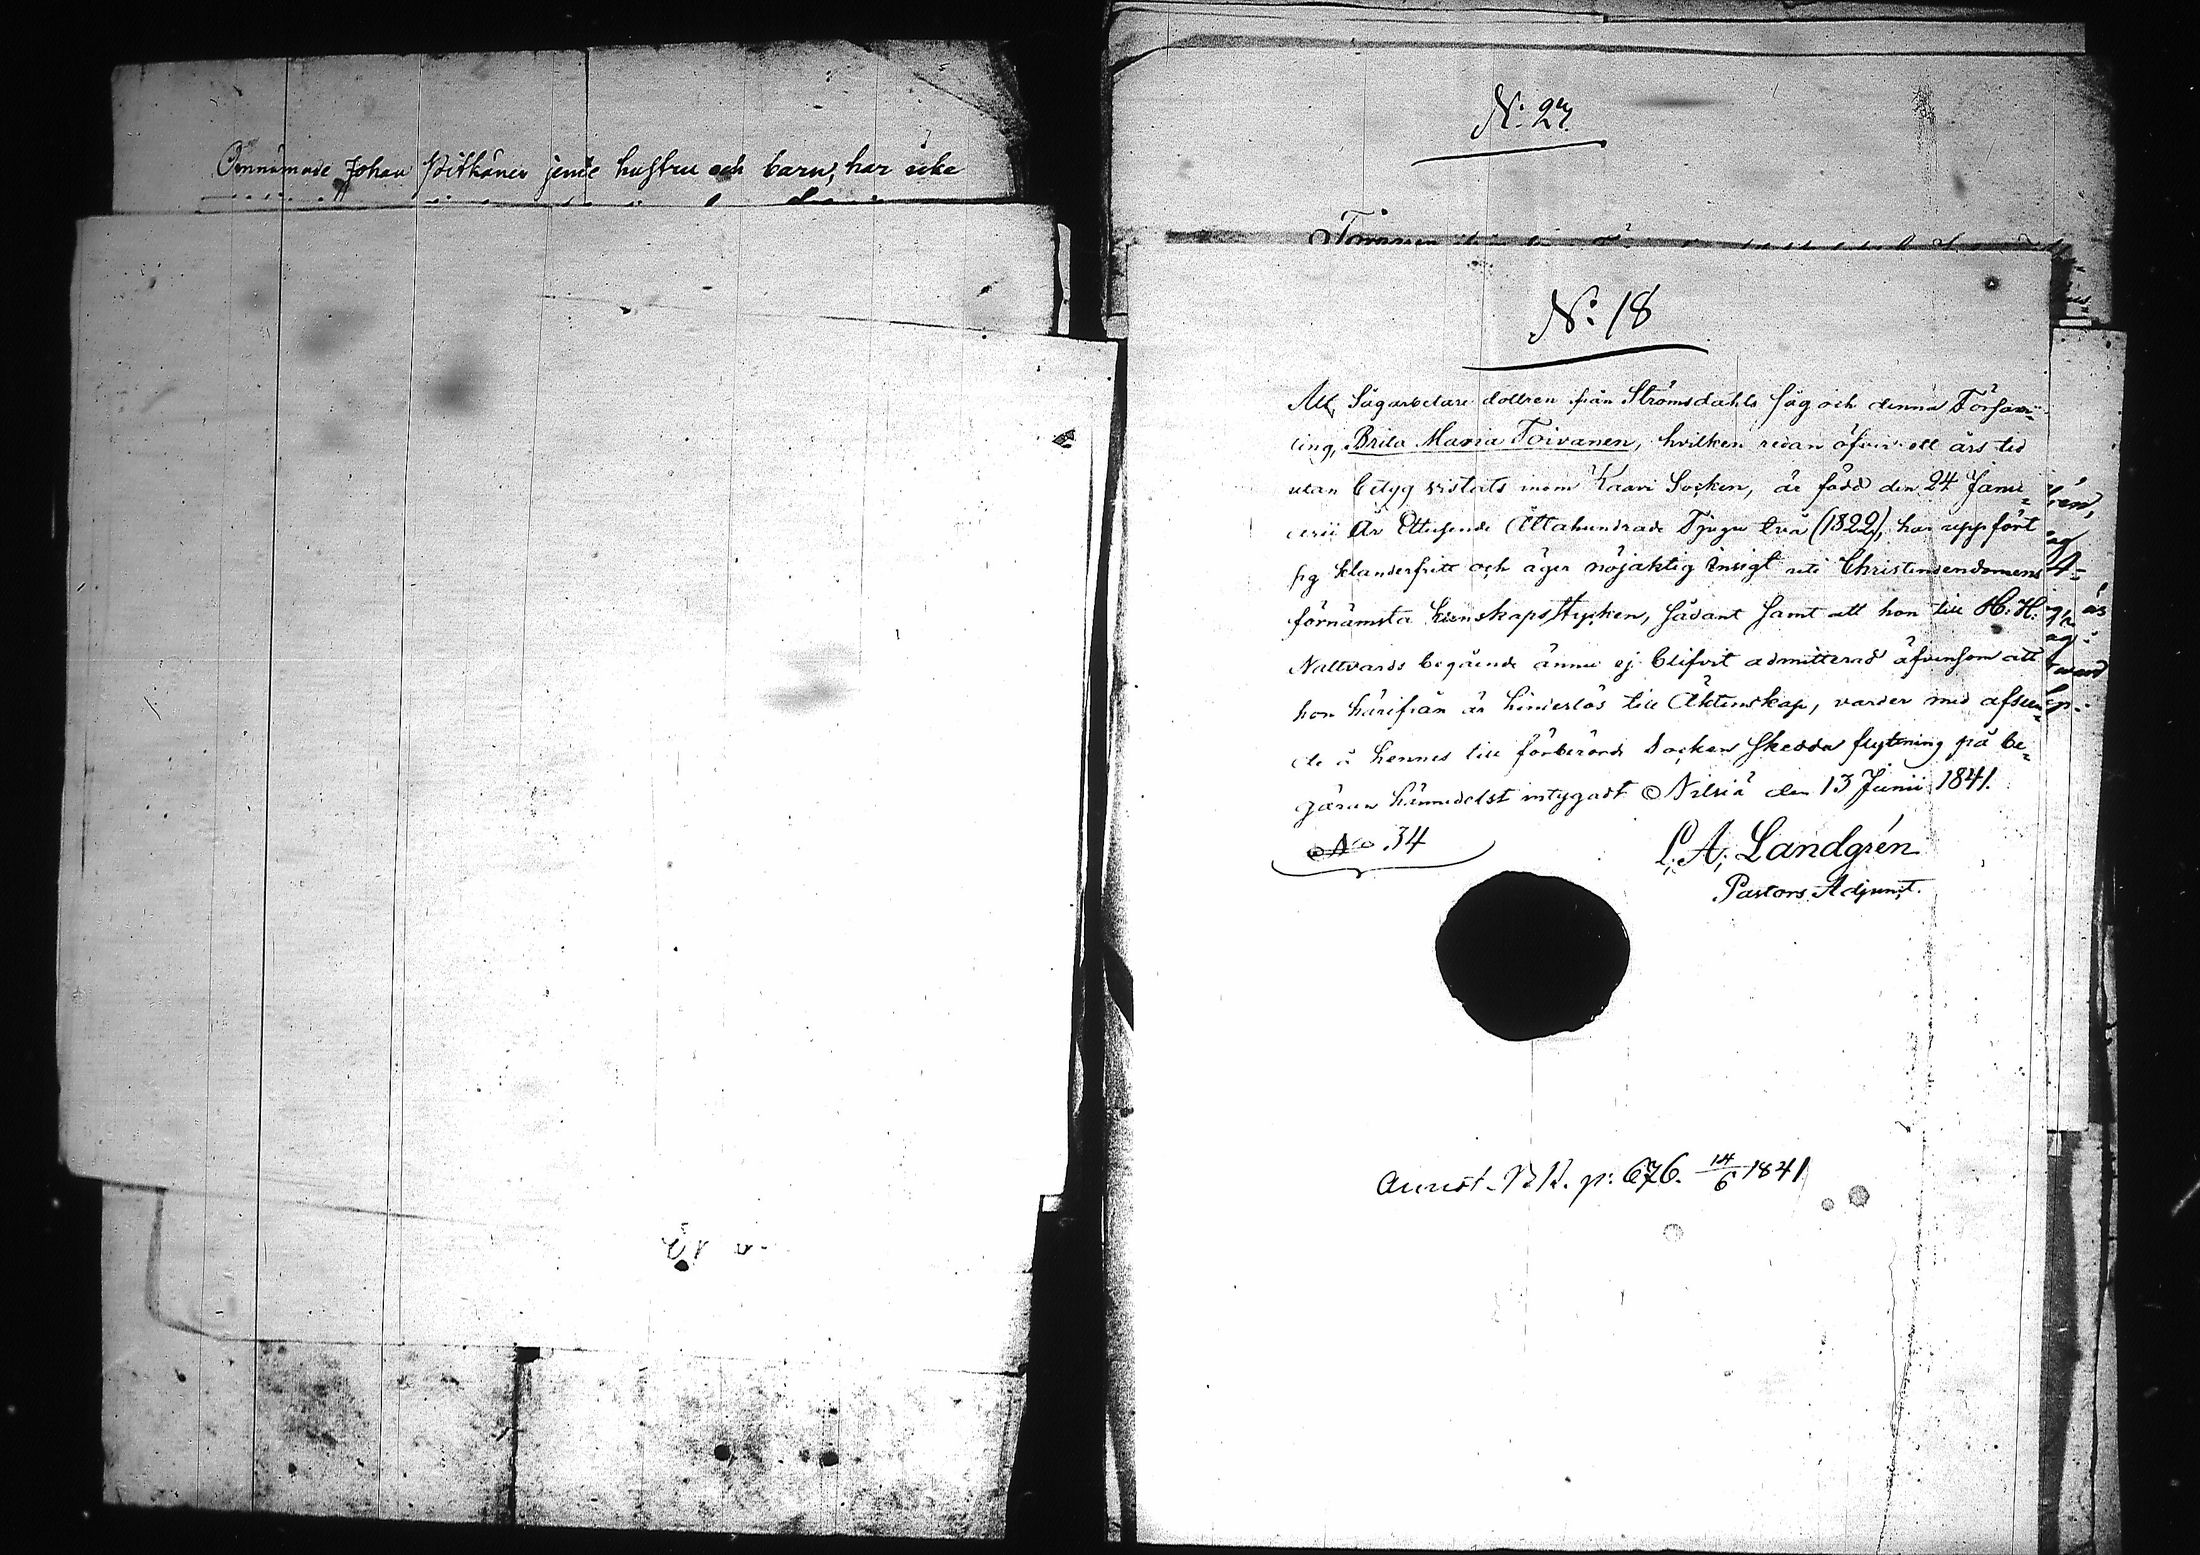 Omnämnde Johan Pitkänen jemte hustru och barn, har icke
N: 27.
N: 18
Att Sågarbetare dottren från Strömsdahls såg och denna Försam=
ling, Brita Maria Toivanen, hvilken redan öfver ett års tid
utan betyg vistats inom Kaavi Socken, är född den 24 Janu=
arii År Ettusende Åttahundrade Tjugu två (1822), har uppfört
sig klanderfritt och äger nöjaktig insigt uti Christendomens
förnämsta kunskapsstycken, sådant samt att hon till H: H:
Nattvards begående ännu ej blifvit admitterad äfvensom att
hon härifrån är hinderlös till Äktenskap, varder med afseen=
de å hennes till förberörde Socken skedda flyttning på be=
gäran hämmedelst intygadt Nilsiä den 13 Junii 1841.
No 34
L. A. Landgrén
Pastors Adjunct.
p: 676. 14/6 1841